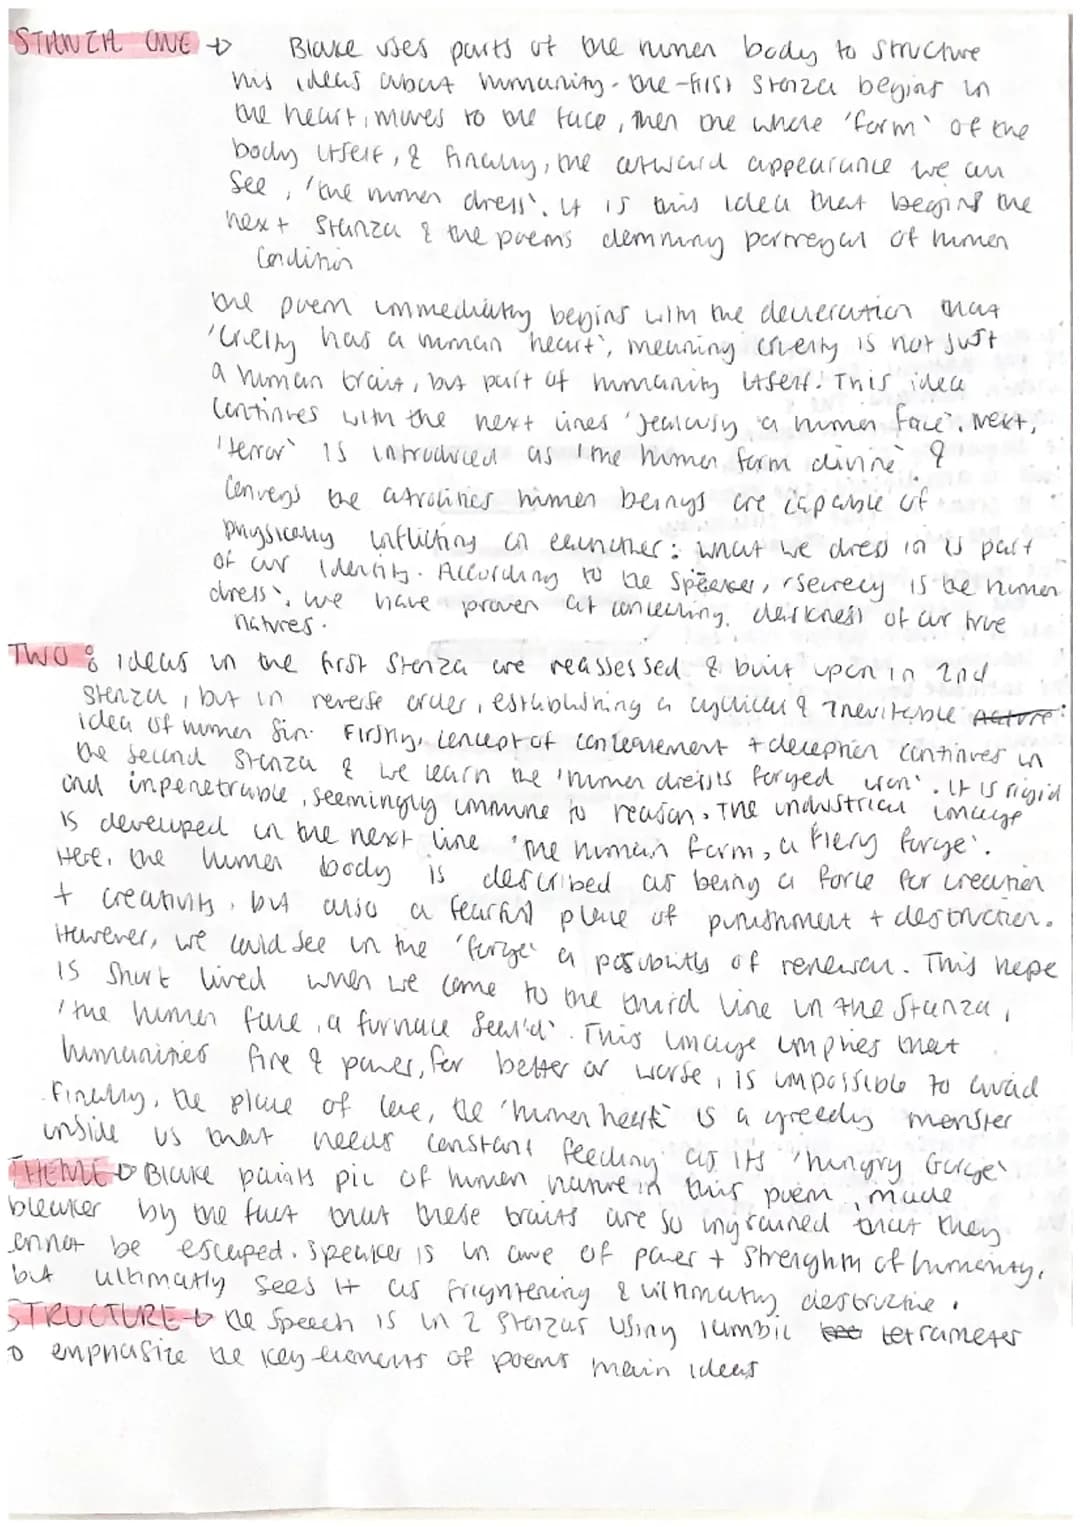 STANZA ONE → Blake uses parts of the human body to structure
his ideas about humanity. The first stanza begins in
the heart, moves to the face, then the whole 'form' of the
body itself, & finally, the outward appearance we can
see, 'the human dress'. It is this idea that begins the
next stanza & the poems damning portrayal of human
condition
The poem immediatly begins with the decleration that
'Cruelty has a human heart', meaning cruelty is not just
a human trait, but part of humanity itself. This idea
continues with the next lines 'Jealousy a human face'. Next,
'terror' is introduced as 'the human form divine' &
conveys the atrocities human beings are capable of
physically inflicting on eachother: what we dress in is part
of our identity. According to the speaker, 'secrecy is the human
dress', we have proven at concealing darkness of our true
natures.
TWO : ideas in the first stanza are reassessed & built upon in 2nd
stanza, but in reverse order, establishing a cyclical & inevitable
idea of human sin. Firstly, concept of concealement + deception continues in
the second stanza & we learn the 'human dress is forged iron'. It is rigid
and inpenetrable, seemingly immune to reason. The industrical image
is developed in the next line 'the human form, a fiery forge'.
Here, the human body is described as being a force for creation
+ creativity, but also a fearful place of punishment + destruction.
However, we could see in the 'forge' a possibility of renewal. This hope
is short lived when we come to the third line in the stanza,
'the human face, a furnace seal'd'. This image implies that
humanities fire & power, for better or worse, is impossible to avoid
Finally, the place of love, the 'human heart' is a greedy monster
inside us that needs constant feeding as its 'hungry Gorge'
THEME → Blake paints pic of human nature in this poem made
bleaker by the fact that these traits are so ingrained that they
cannot be escaped. Speaker is in awe of power + strenghth of humanity,
but ultimatly sees it as frightening & ultimatly destructive.
STRUCTURE → the speech is in 2 stanzas using iambic tetrameter
to emphasize the key elements of poems main ideas